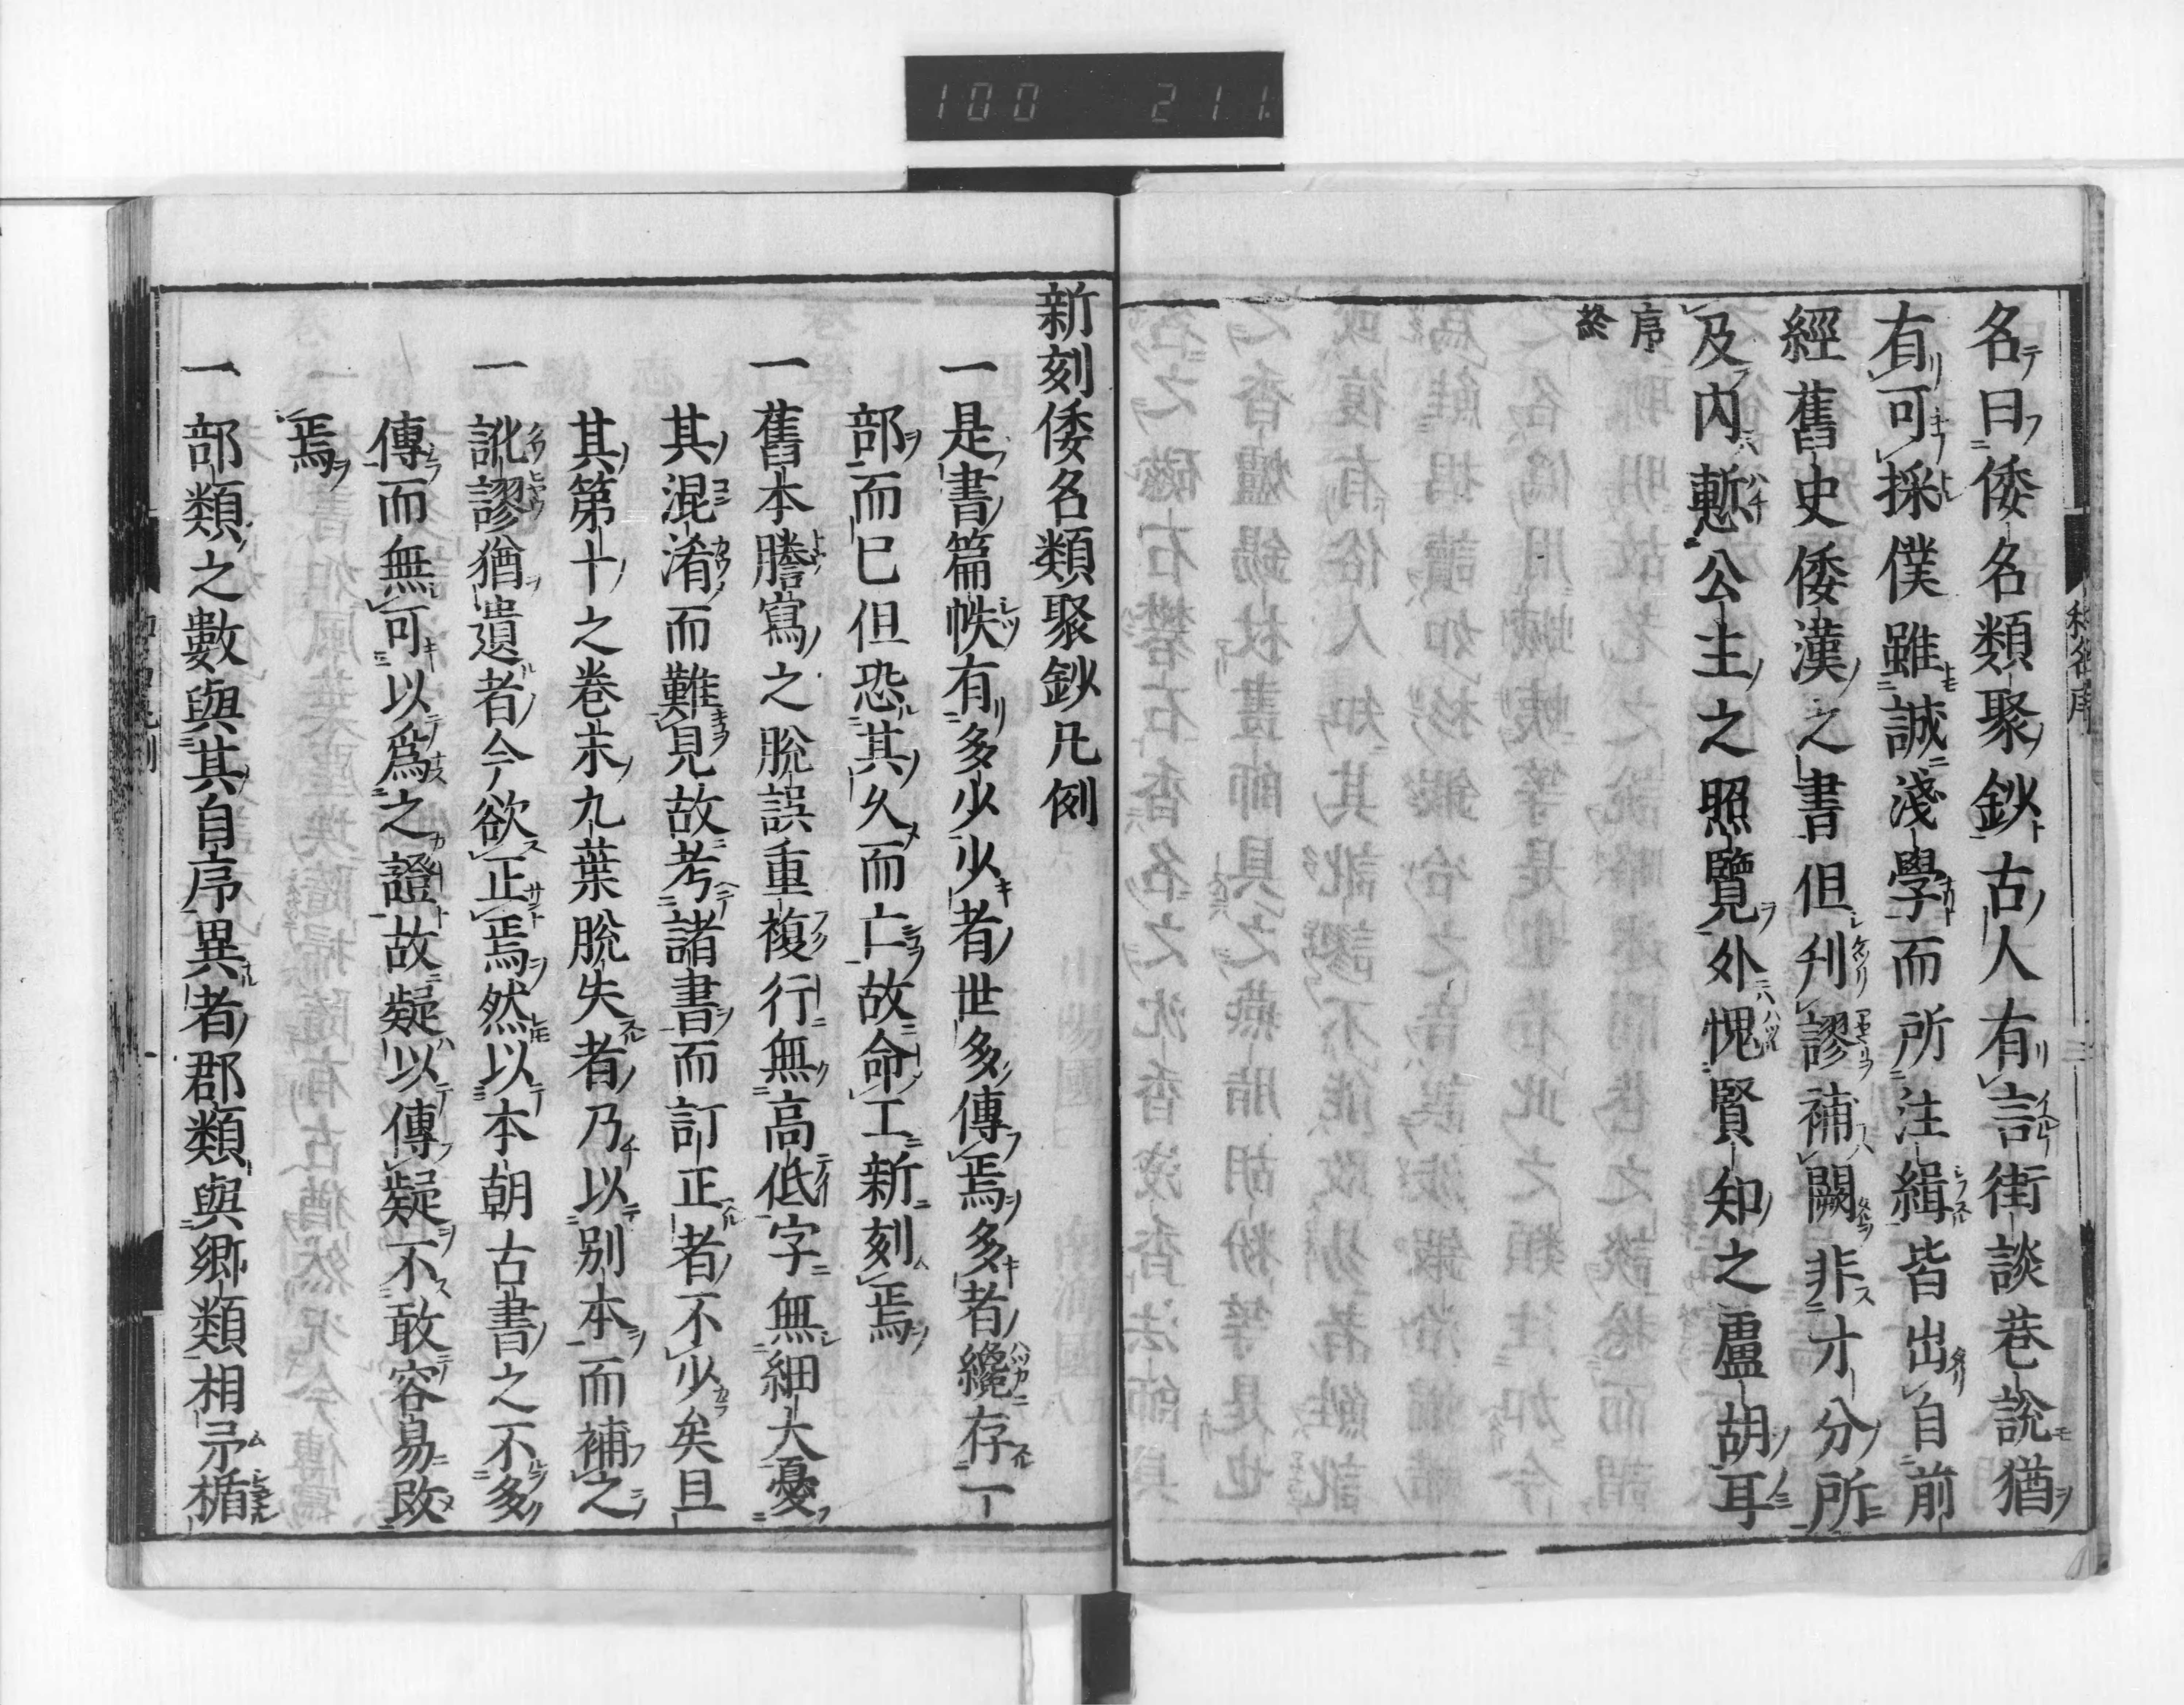 100 211
名曰倭名類聚鈔古人有言街談巷說猶
有可採僕雖誠淺學而所注緝皆出自前
經舊史倭漢之書但刋謬補闕非才分所
及內慙公主之照覽外愧賢知之盧胡耳
序
終
新刻倭名類聚鈔凡例
一是書篇帙有多少少者世多傳焉多者纔存一
部而已但恐其久而亡故命工新刻焉
一舊本謄寫之脫誤重複行無高低字無細大憂
其混淆而難見故考諸書而訂正者不少矣且
其第十之卷末九葉脫失者乃以別本而補之
一訛謬猶遺者今欲正焉然以本朝古書之不多
傳而無可以爲之證故疑以傳疑不敢容易改
焉
一部類之數與其自序異者郡類與鄉類相矛楯